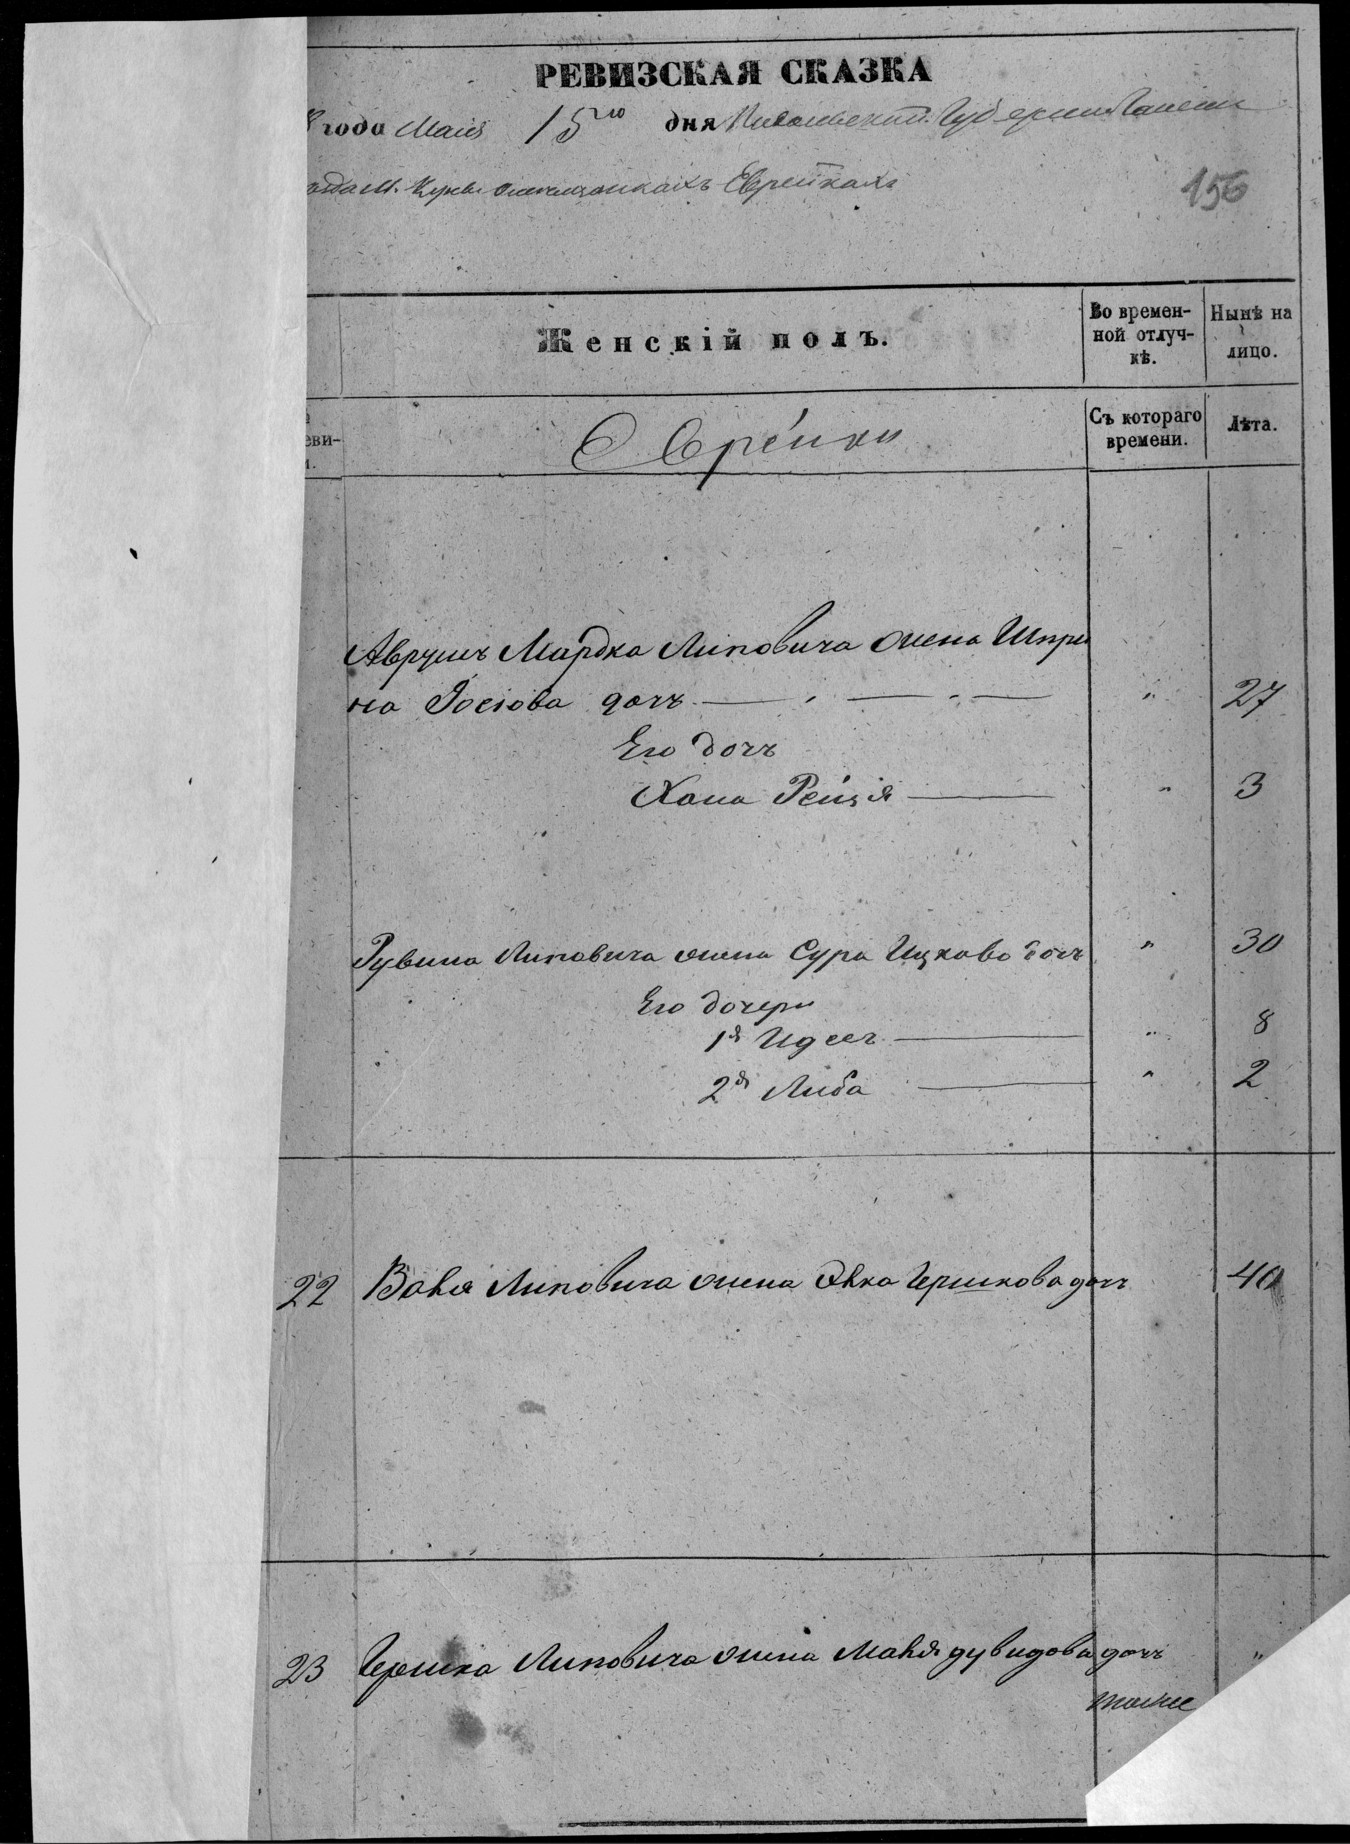 РЕВИЗСКАЯ СКАЗКА
года Маія 15го дня Губерніи
Еврейкахъ
156
Женскій полъ.
Во времен-
ной отлуч-
кѣ.
Нынѣ на
лицо.
еви-
Еврейки
Съ котораго
времени.
Лѣта.
Аврумъ Мардка Липовича жена Шпри
на Іосіова дочь " 27
Его дочь
Хана Рейзя " 3
Рувина Липовича жена Сура Ицкова дочь " 30
Его дочери
1я Идесъ " 8
2я Либа " 2
22 Вовя Липовича жена Хвка Гершкова дочь 40
23 Гершка Липовича жена Маня Дувидова дочь "
тоже